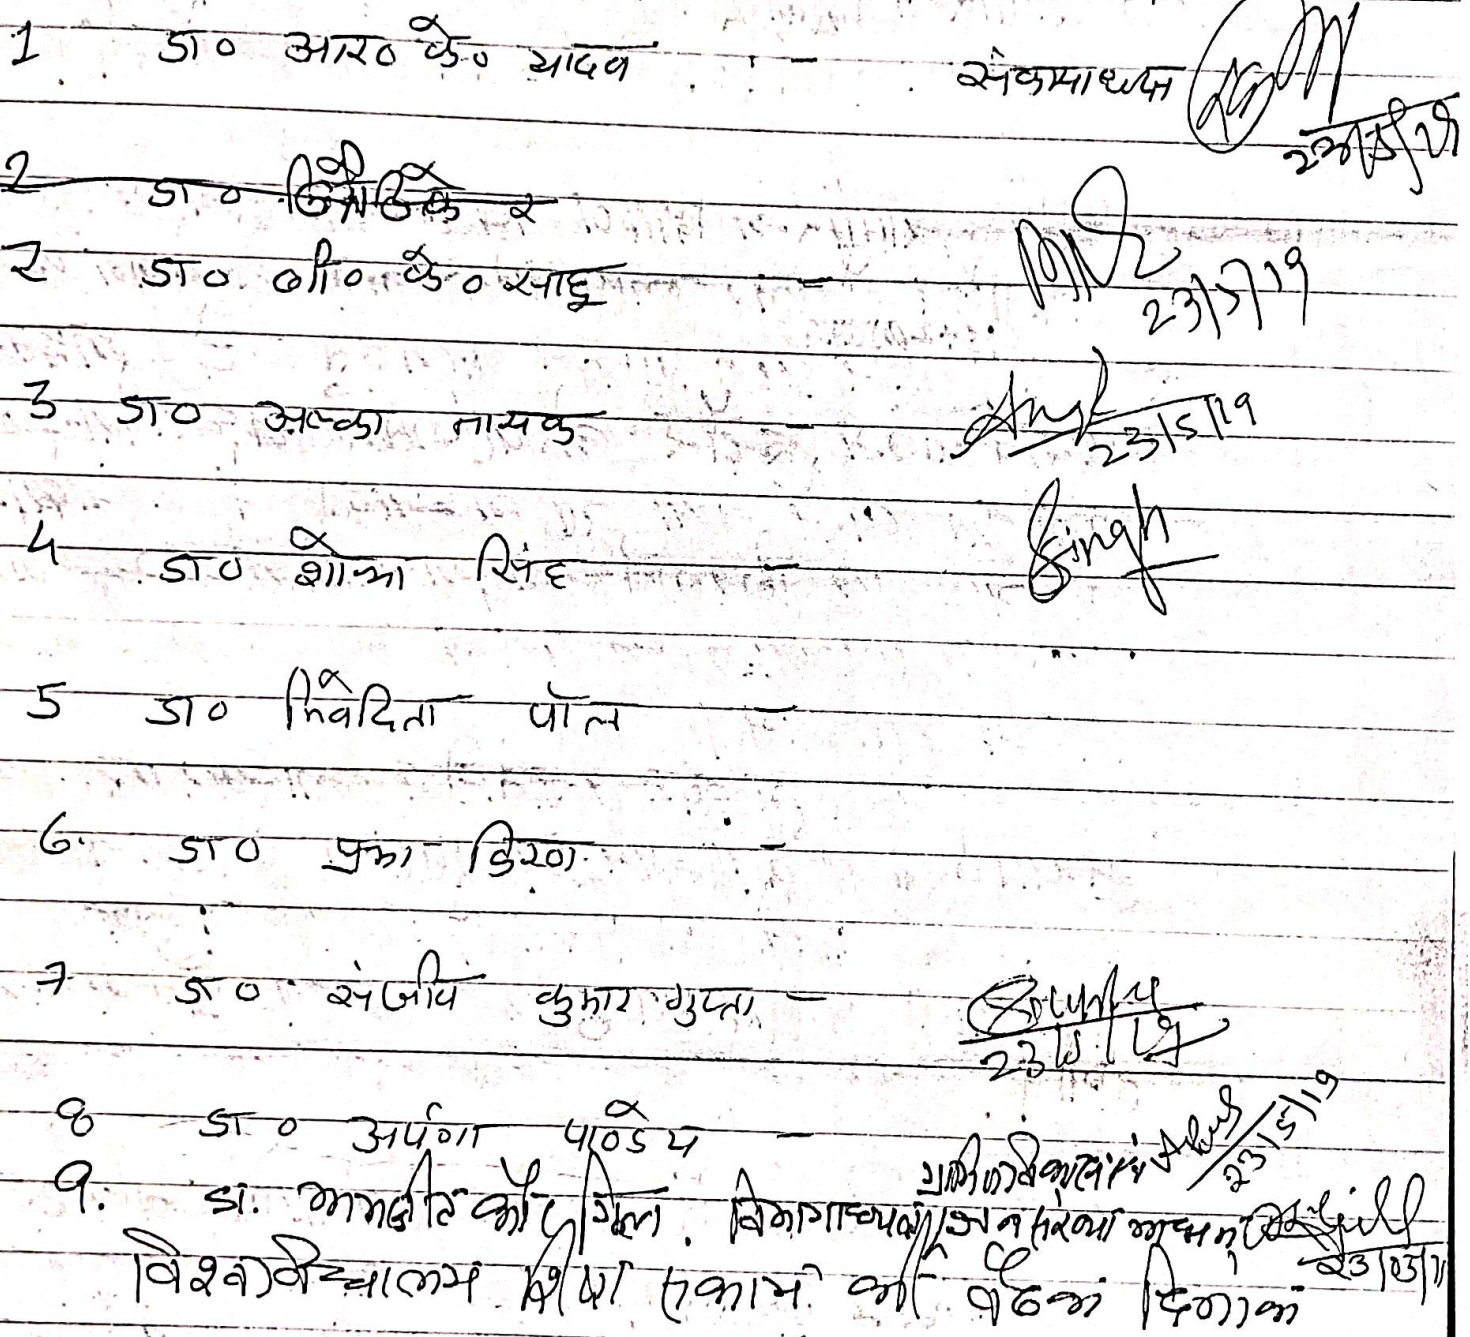 1 डा० आर० के० यादव - संकायाध्यक्ष
2 डा०
2 डा० बी० के० साहू - 23/5/19
3 डा० अल्का नायक - 23/5/19
4 डा० शोभा सिंह - Singh
5 डा० निवेदिता पॉल -
6. डा० प्रभा किरण -
7 डा० संजीव कुमार गुप्ता - 23/5/19
8 डा० अर्पणा पाण्डेय - 23/5/19
9. डा. अमरजीत कौर गिल. विभागाध्यक्ष
विश्वविद्यालय शिक्षा संकाय की बैठक दिनांक